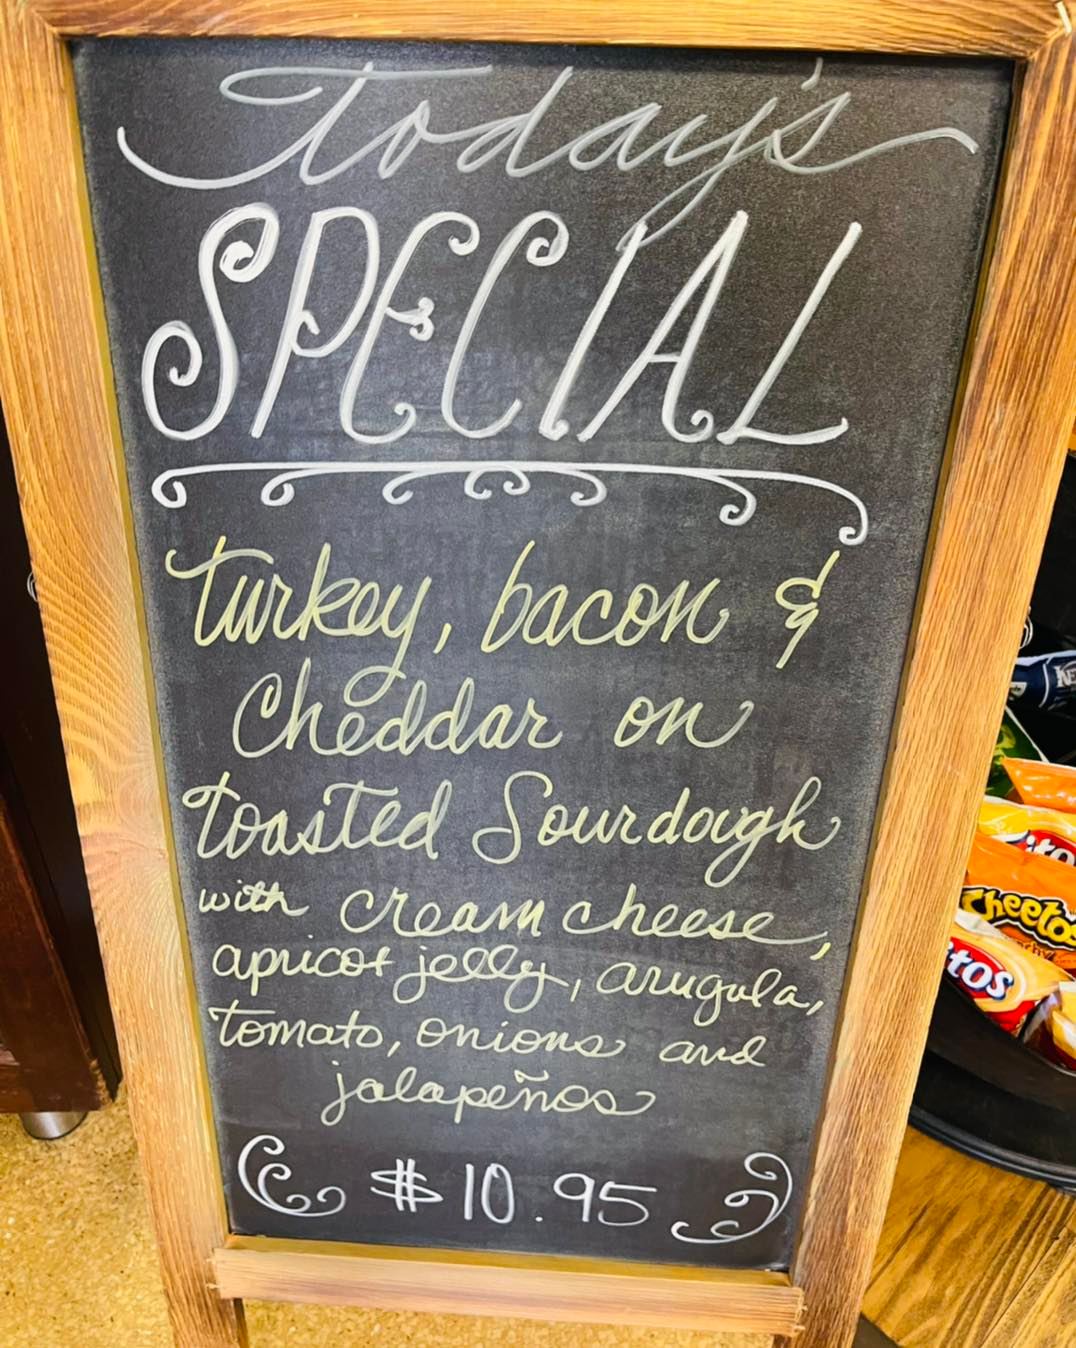 Today's
SPECIAL
turkey, bacon &
Cheddar on
toasted Sourdough
with cream cheese,
apricot jelly, arugula,
tomato, onions and
jalapeños
$10.95
Cheetos